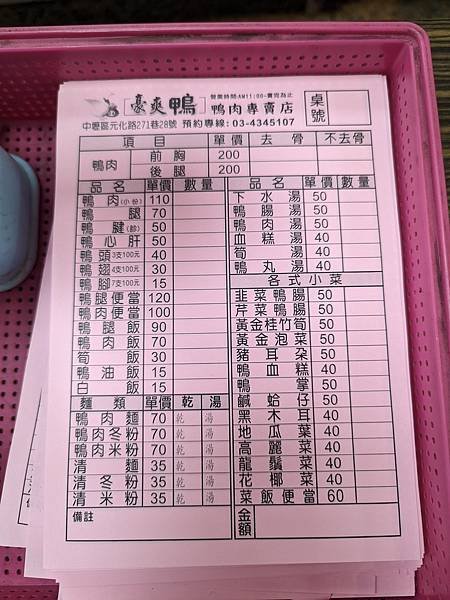 豪爽鴨 營業時間:AM11:00-賣完為止
鴨肉專賣店 桌號
中壢區元化路271巷28號 預約專線:03-4345107
項目 單價 去骨 不去骨
鴨肉 前胸 200
後腿 200
品名 單價 數量
鴨肉(小份) 110
鴨腿 70
鴨腱(診) 50
鴨心肝 50
鴨頭3支100元 40
鴨翅4支100元 30
鴨腳7支100元 15
鴨腿便當 120
鴨肉便當 100
鴨腿飯 90
鴨肉飯 70
筍飯 30
鴨油飯 15
白飯 15
麵類 單價 乾 湯
鴨肉麵 70 乾 湯
鴨肉冬粉 70 乾 湯
鴨肉米粉 70 乾 湯
清麵 35 乾 湯
清冬粉 35 乾 湯
清米粉 35 乾 湯
備註
品名 單價 數量
下水湯 50
鴨腸湯 50
鴨肉湯 50
血糕湯 40
筍湯 40
鴨丸湯 40
各式小菜
韭菜鴨腸 50
芹菜鴨腸 50
黃金桂竹筍 50
黃金泡菜 50
豬耳朵 50
鴨血糕 40
鴨掌 50
鹹蛤仔 50
黑木耳 40
地瓜葉 40
高麗菜 40
龍鬚菜 40
花椰菜 40
菜飯便當 60
金額